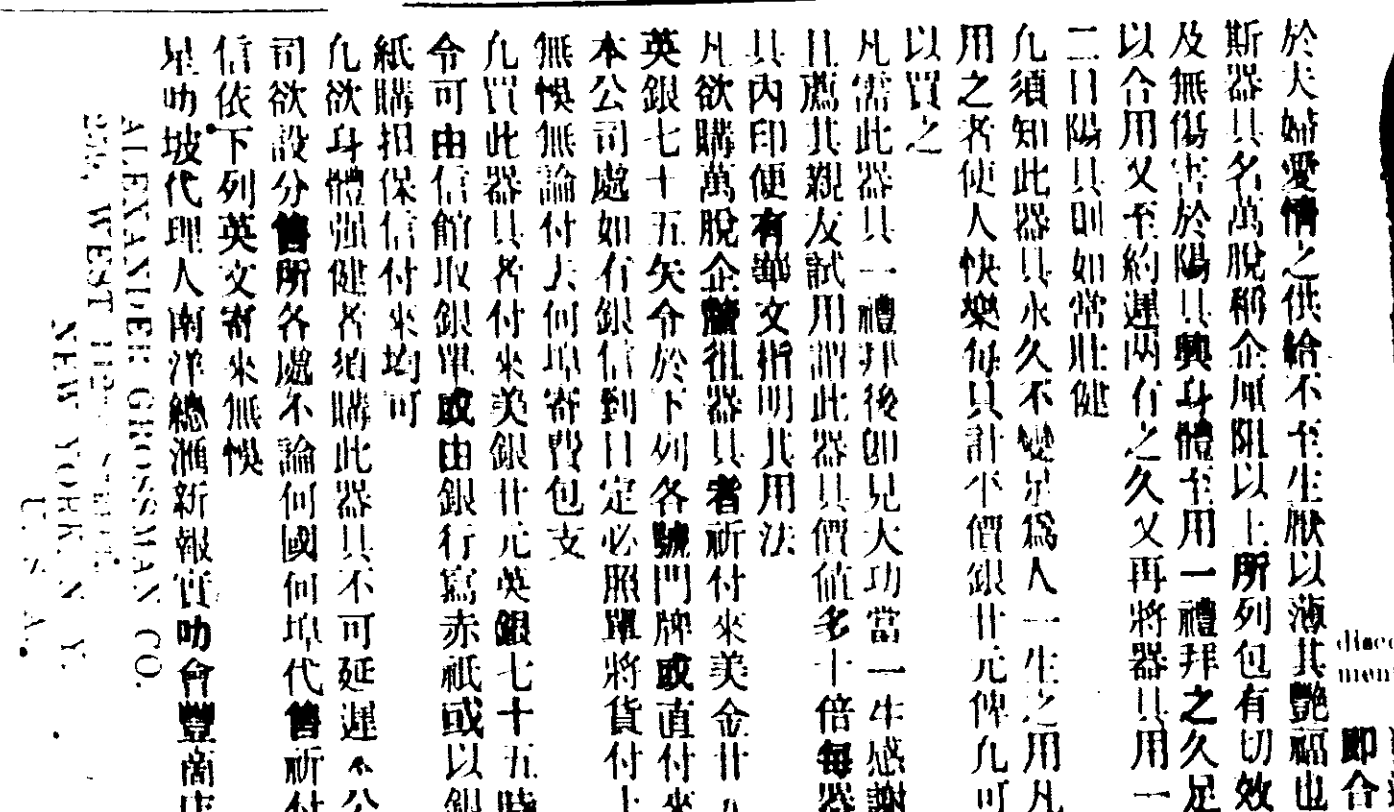 即合
於夫婦愛情之供給不至生厭以薄其艷福也
斯器具名萬脫稱企厘阻以上所列包有切效
及無傷害於陽具與身體至用一禮拜之久足
以合用又至約遲兩冇之久又再將器具用一
二日陽具則如常壯健
凡須知此器具永久不變足為人一生之用凡
用之者使人快樂每具計平價銀廿元俾凡可
以買之
凡需此器具一禮拜後即見大功當一生感謝
且薦其親友試用謂此器具價值多十倍每器
具內印便有華文指明其用法
凡欲購萬脫企 徂器具者祈付來美金廿九
英銀七十五矢令於下列各號門牌或直付來
本公司處如有銀信到日定必照單將貨付上
無悞無論付去何埠寄費包支
凡買此器具者付來美銀廿元英銀七十五時
令可由信館取銀單或由銀行寫赤祇或以銀
紙購担保信付來均可
凡欲身體強健者須購此器具不可延遲本公
司欲設分售所各處不論何國何埠代售祈付
信依下列英文寄來無悞
星叻坡代理人南洋總滙新報實叻會豐商店
ALEXANDER GROSSMAN CO.
WEST
NEW YORK N. Y.
U. S. A.